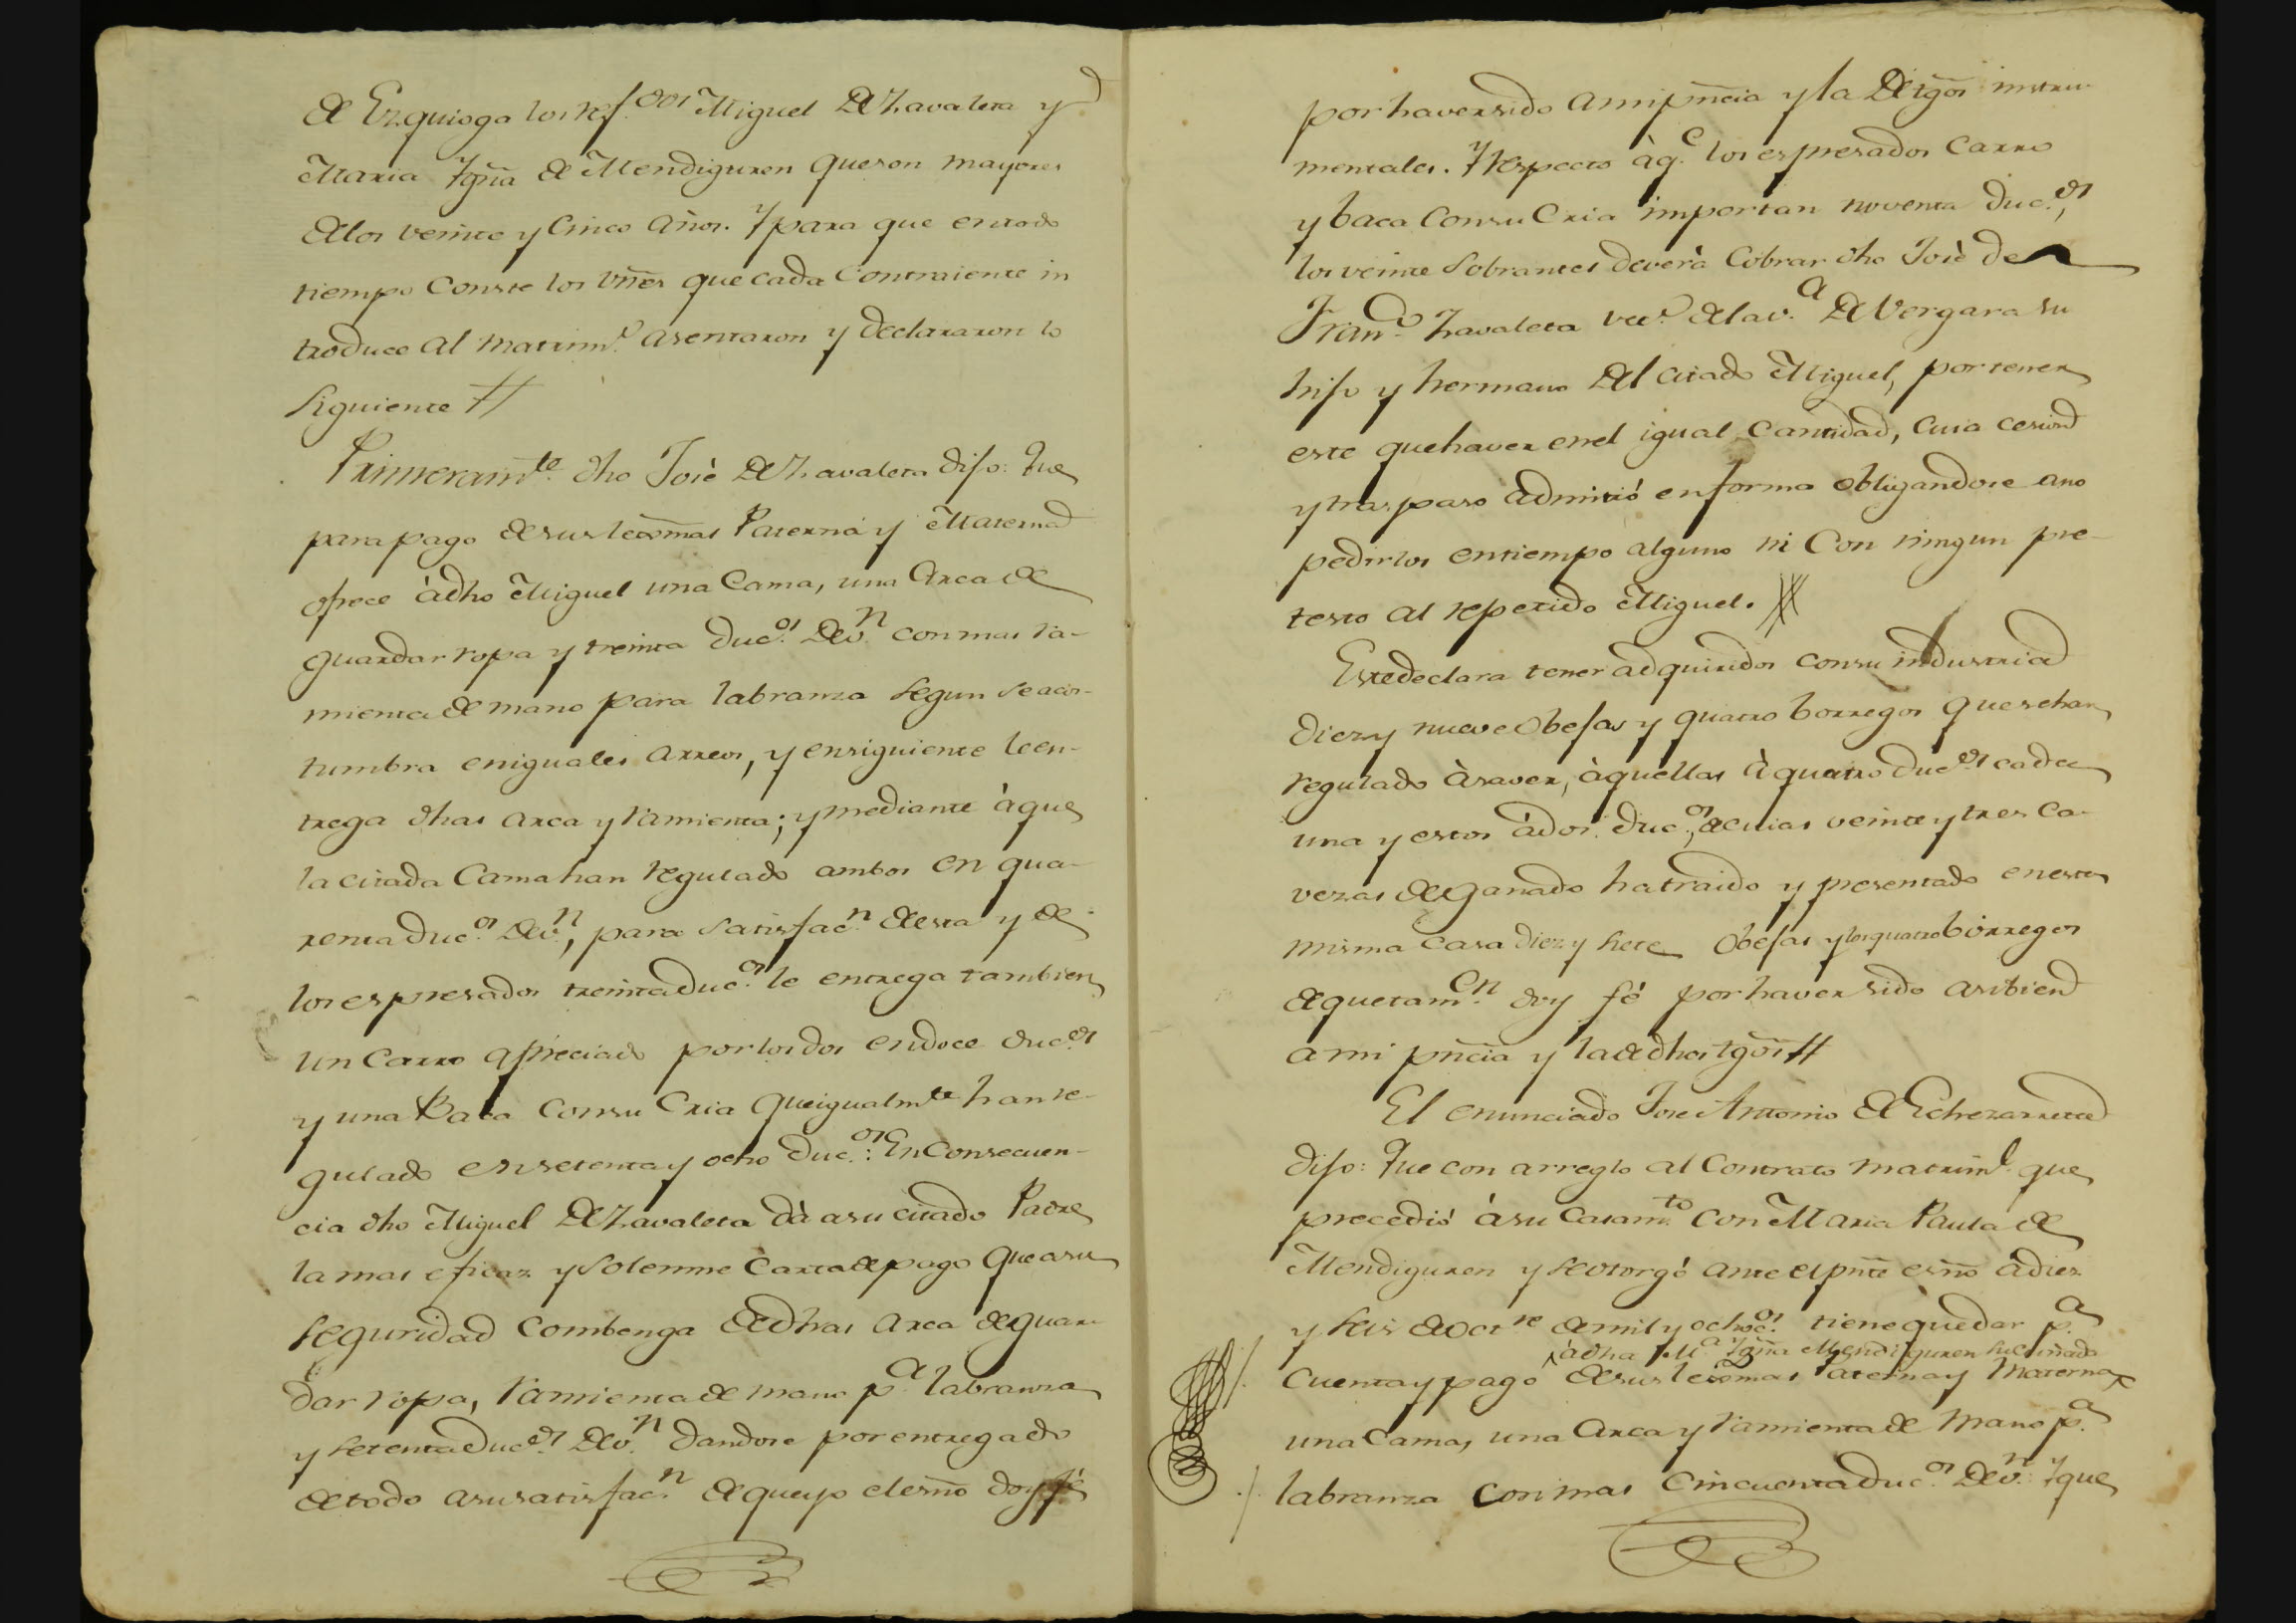 de Ezquioga los ref.dos Miguel de Zavaleta y
Maria Ygña de Mendiguren que son mayores
de los veinte y Cinco años. Y para que en todo
tiempo Conste los vñes que cada Contraiente in
troduce al matrim.o asentaron y declararon lo
siguiente //
Primeram.te dho José de Zavaleta dijo: Que
para pago de sus lexmas Paterna y Materna
ofrece à dho Miguel una Cama, una Arca de
guardar ropa y treinta duc.os de v.n con mas ra-
mienta de mano para labranza segun se acos-
tumbra en iguales arreos, y en siguiente le en-
trega dhas arca y ramienta; y mediante à que
la citada Cama han regulado ambos en qua-
renta duc.os de v.n, para satisfac.n de esta y de
los espresados treinta duc.os le entrega tambien
un Carro apreciado por los dos en doce duc.os
y una Baca Con su Cria que igualm.te han re-
gulado en setenta y ocho duc.os: En Consecuen-
cia dho Miguel de Zavaleta dà a su citado Padre
la mas eficaz y solemne Carta de pago que a su
seguridad combenga de dhas arca de guar-
dar ropa, ramienta de mano p.a labranza
y setenta duc.os de v.n dandose por entregado
de todo a su satisfac.n de que yo el esño doy fé
por haver sido a mi pñcia y la de tgos instru-
mentales. Y respecto à q.e los espresados Carro
y baca Con su Cria importan noventa duc.os,
los veinte sobrantes deverà Cobrar dho José de
Fran.co Zavaleta vec.o de la v.a de Vergara su
hijo y hermano del citado Miguel, por tener
este que haver en el igual Cantidad, cuia cesion
y traspaso admitió en forma obligandose a no
pedirlos en tiempo alguno ni Con ningun pre-
testo al repetido Miguel. //
Este declara tener adquiridos con su industria
diez y nueve Obejas y quatro borregos que se han
regulado à saver, àquellas à quatro duc.os cada
una y estos à dos duc.os, de cuias veinte y tres ca-
vezas de ganado ha traido y presentado en esta
misma casa diez y siete Obejas y los quatro borregos
de que tam.en doy fé por haver sido asi bien
a mi pñcia y la de dhos tgos //
El enunciado Jose Antonio de Echezarreta
dijo: Que con arreglo al Contrato matrim.l que
precedió à su Casam.to Con Maria Paula de
Mendiguren y se otorgó ante el pñte esño à diez
y seis de Oct.re de mil y ochoc.os tiene que dar p.a
à dha M.a Ygña Mendiguren su cuñada
Cuenta y pago de sus lexmas Paterna y Materna
una Cama, una Arca y ramienta de mano p.a
labranza con mas Cincuenta duc.os de v.n: Y que